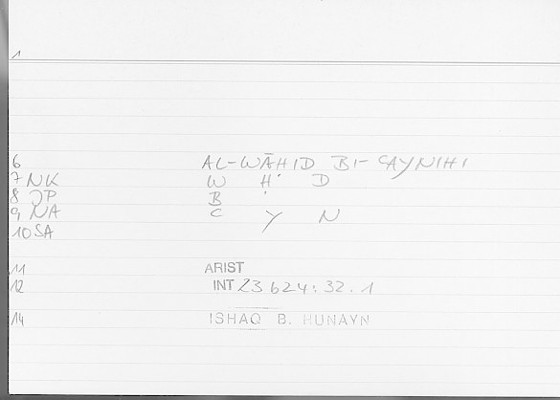 1
6 AL-WĀḤID BI-CAYNIHI
7 NK W Ḥ D
8 JP B
9 NA C Y N
10 SA
11 ARIST
12 INT 23 624:32.1
14 ISHAQ B. HUNAYN